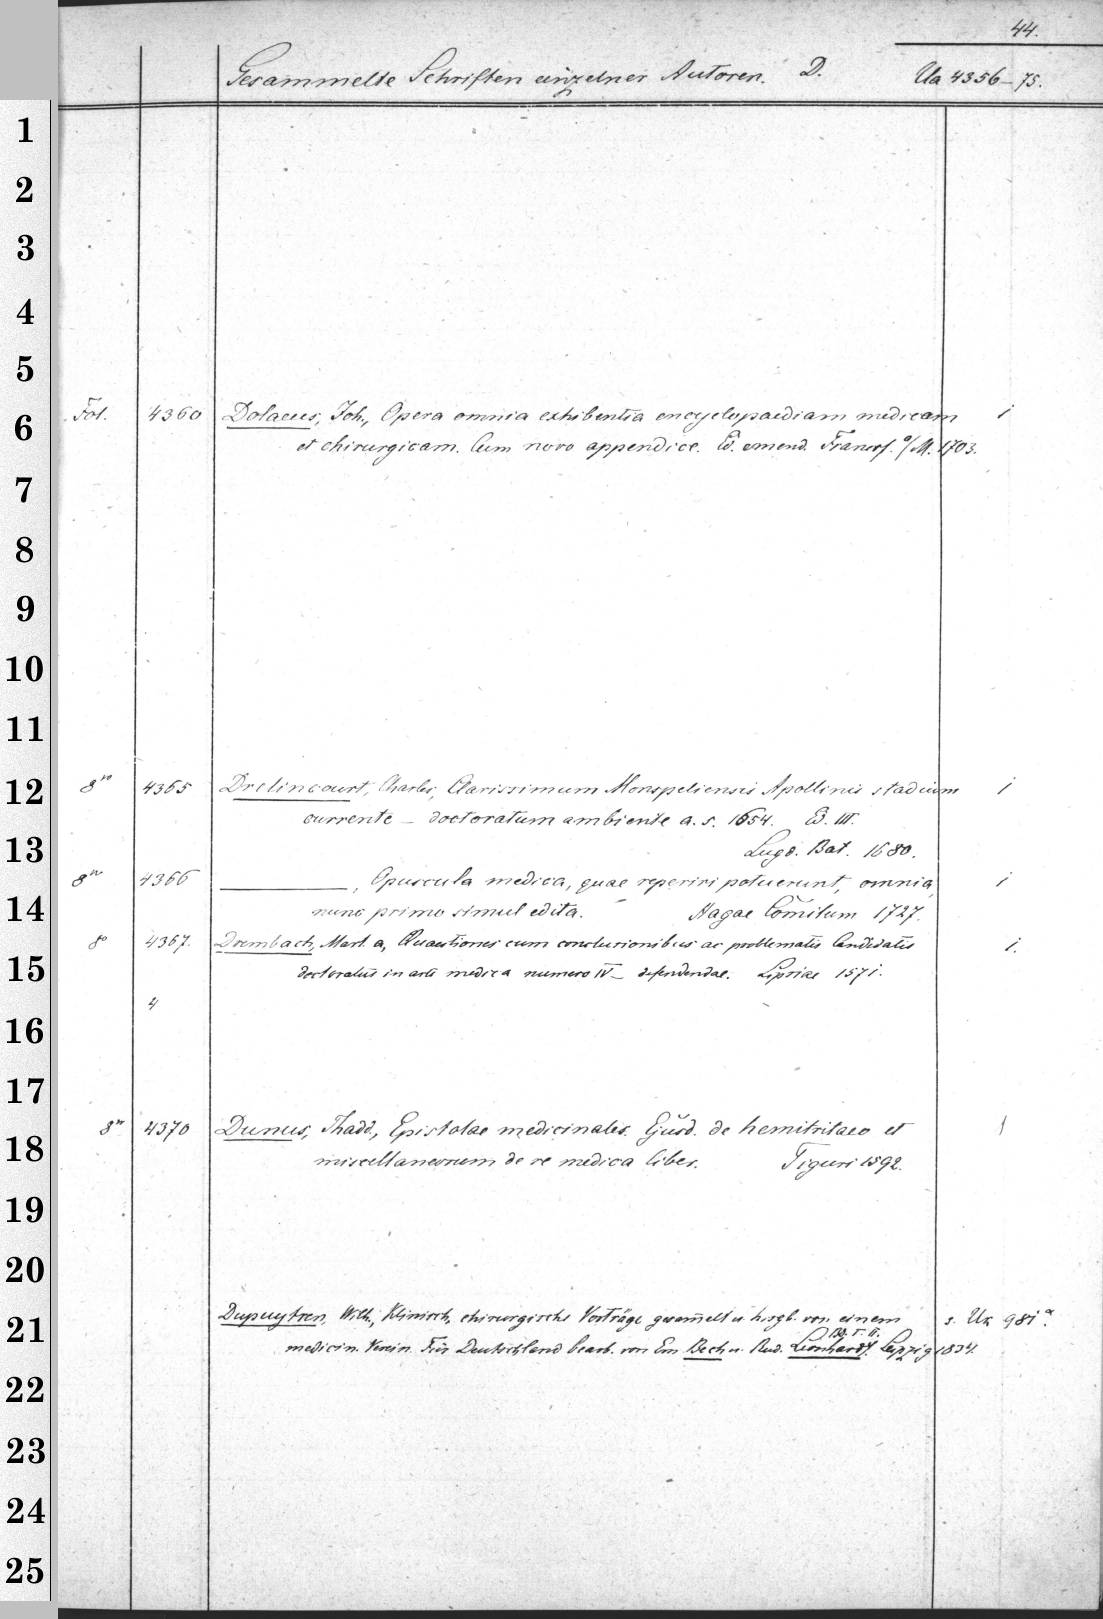 44.
Gesammelte Schriften einzelner Autoren. D. Ua 4356-75.
1
2
3
4
5
Fol. 4360 Dolaeus, Joh., Opera omnia exhibentia encyclopaediam medicam 1
6
et chirurgicam. Cum novo appendice. Ed. emend. Francof. a/M. 1703.
7
8
9
10
11
8vo 4365 Drelincourt, Charles, Clarissimum Monspeliensis Apollinis stadium 1
12
currente - doctoratum ambiente a. s. 1654. Ed. III.
13
Lugd. Bat. 1680.
8vo 4366 ______, Opuscula medica, quae reperiri potuerunt, omnia, 1
14
nunc primo simul edita. Hagae Comitum 1727.
8o 4367. Drembach, Mart. a, Quaestiones cum conclusionibus ac problematis Candidatis 1.
15
doctoratus in arte medica numero IV - defendendae. Lipsiae 1571.
4
16
17
8vo 4370 Dunus, Thadd., Epistolae medicinales. Ejusd. de hemitritaeo et 1
18
miscellaneorum de re medica liber. Tiguri 1592.
19
20
Dupuytren, Wilh., Klinisch chirurgische Vorträge gesammelt u. hrsgb. von einem s. Ux 981a.
21
Bd. I. II.
medicin. Verein. Für Deutschland bearb. von Em Bech u. Rud. Leonhardi. Leipzig 1834.
22
23
24
25